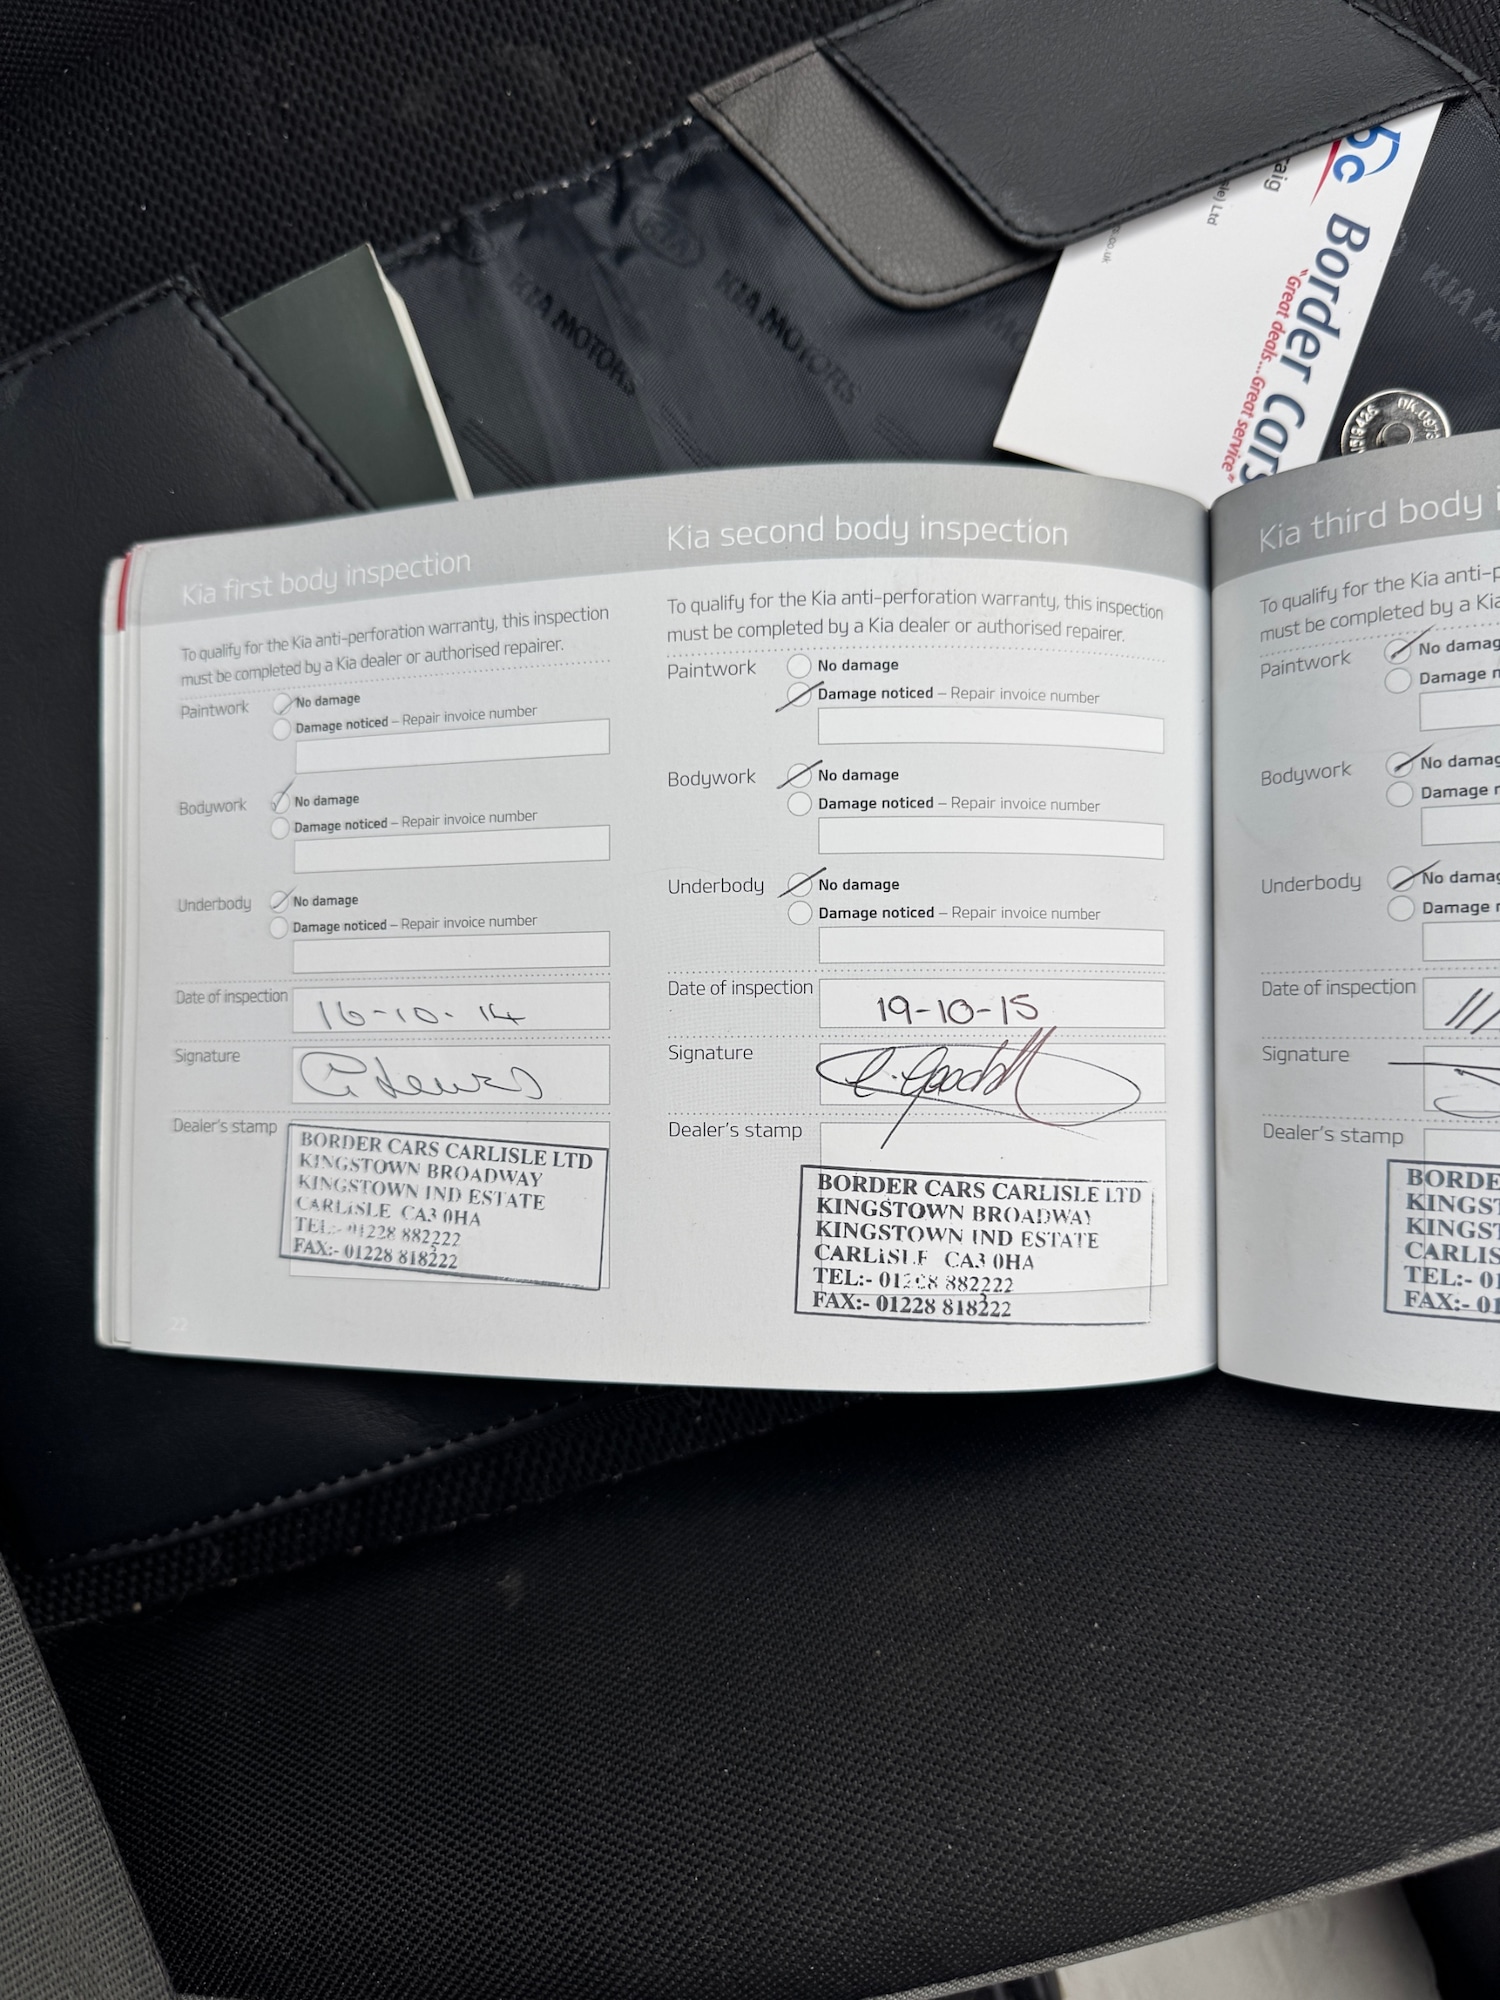 Border Cars
"Great deals...Great service"
KIA MOTORS
KIA MOTORS
Kia first body inspection
To qualify for the Kia anti-perforation warranty, this inspection
must be completed by a Kia dealer or authorised repairer.
Paintwork
No damage
Damage noticed – Repair invoice number
Bodywork
No damage
Damage noticed – Repair invoice number
Underbody
No damage
Damage noticed – Repair invoice number
Date of inspection
16-10-14
Signature
Dealer's stamp
BORDER CARS CARLISLE LTD
KINGSTOWN BROADWAY
KINGSTOWN IND ESTATE
CARLISLE CA3 0HA
TEL:- 01228 882222
FAX:- 01228 818222
22
Kia second body inspection
To qualify for the Kia anti-perforation warranty, this inspection
must be completed by a Kia dealer or authorised repairer.
Paintwork
No damage
Damage noticed – Repair invoice number
Bodywork
No damage
Damage noticed – Repair invoice number
Underbody
No damage
Damage noticed – Repair invoice number
Date of inspection
19-10-15
Signature
Dealer's stamp
BORDER CARS CARLISLE LTD
KINGSTOWN BROADWAY
KINGSTOWN IND ESTATE
CARLISLE CA3 0HA
TEL:- 01228 882222
FAX:- 01228 818222
Kia third body
To qualify for the Kia anti-
must be completed by a
Paintwork
No
Damage
Bodywork
No
Damage
Underbody
No
Damage
Date of inspection
Signature
Dealer's stamp